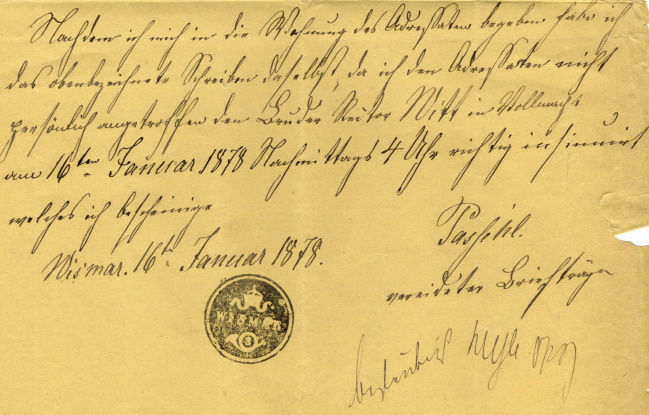 Nachdem ich mich in die Wohnung des Adressaten begeben habe ich
das obenbezeichnete Schreiben daselbst, da ich den Adressaten nicht
persönlich angetroffen den Bruder Rector Witt in Vollmacht
am 16ten Januar 1878 Nachmittags 4 Uhr richtig insinuirt
welches ich bescheinige
Wismar. 16t Januar 1878.
vereideter Briefträger
WISMAR